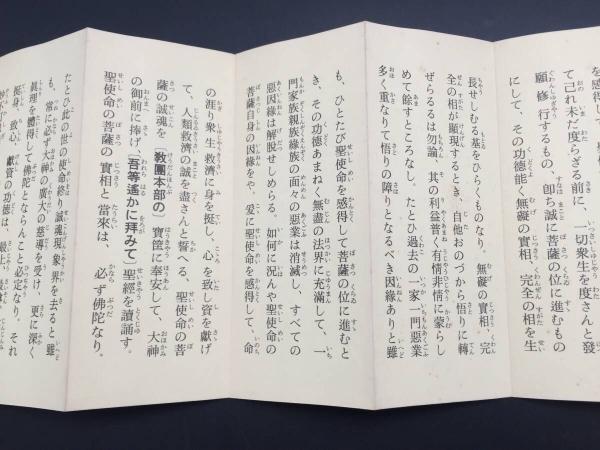 を感得して
て己れ未だ度らざる前に、一切衆生を度さんと發
願修行するもの、卽ち誠に菩薩の位に進むもの
にして、その功德能く無礙の實相、完全の相を生
長せしむる基をひらくものなり。無礙の實相、完
全の相が顯現するとき、自他おのづから悟りに轉
ぜらるるは勿論、其の利益普く有情非情に蒙らし
めて餘すところなし。たとひ過去の一家一門惡業
多く重なりて悟りの障りとなるべき因緣ありと雖
も、ひとたび聖使命を感得して菩薩の位に進むと
き、その功德あまねく無盡の法界に充滿して、一
門家族親族緣族の面々の惡業は消滅し、すべての
惡因緣は解脫せしめらる。如何に況んや聖使命の
菩薩自身の因緣をや。爰に聖使命を感得して、命
の涯り衆生救濟に身を挺し、心を致し資を獻げ
て、人類救濟の誠を盡さんと誓へる、聖使命の菩
薩の誠魂を〔教團本部の〕寶筐に奉安して、大神
の御前に捧げ、〔吾等遙かに拜みて〕聖經を讀誦す。
聖使命の菩薩の實相と當來は、必ず佛陀なり。
たとひ此の世の使命終り誠魂現象界を去ると雖
も、常に必ず大神の廣大の慈導を受け、更に深く
眞理を體得して佛陀とならんこと必定なり。それ
挺身、致心、獻資の功德は、最